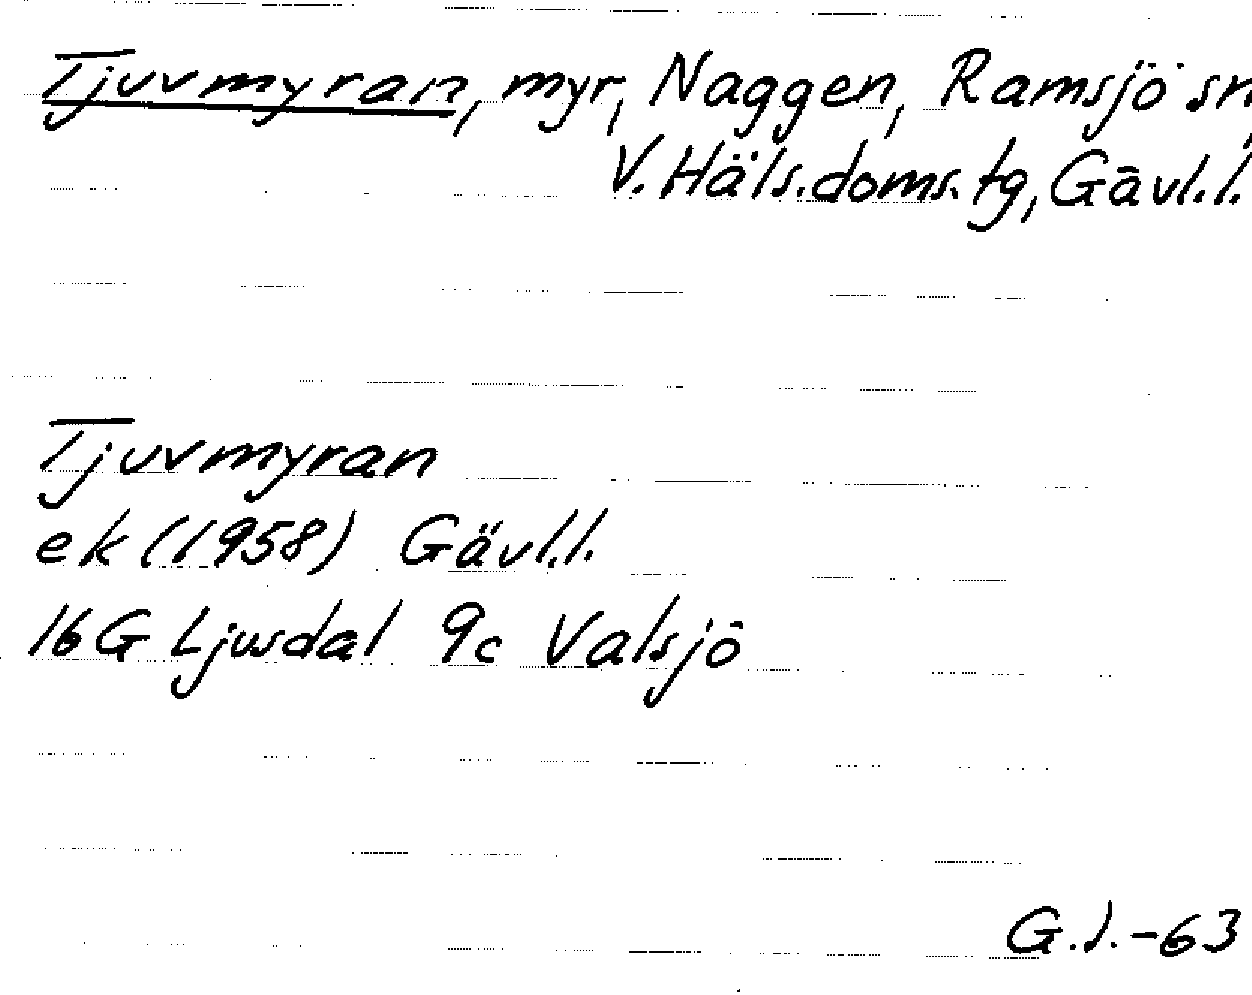 Tjuvmyran, myr, Naggen, Ramsjö sn,
V. Häls. doms. tg, Gävl. l.
Tjuvmyran
ek (1958) Gävl. l.
16 G Ljusdal 9c Valsjö
G.J.-63